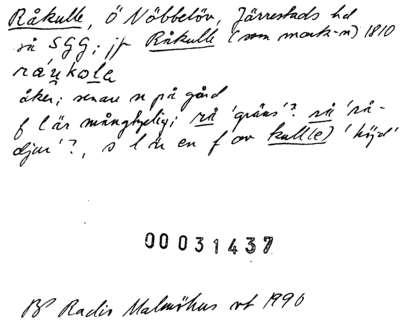 Råkulle, Ö Nöbbelöv, Järrestads hd
så SGG; jf Råkulle (som mark-n) 1810
råukola
åker; senare n på gård
f l är mångtydig; rå 'gräns'? rå 'rå-
djur'?, s l är en f av kull(e) 'höjd'
00031437
BP Radio Malmöhus vt 1990